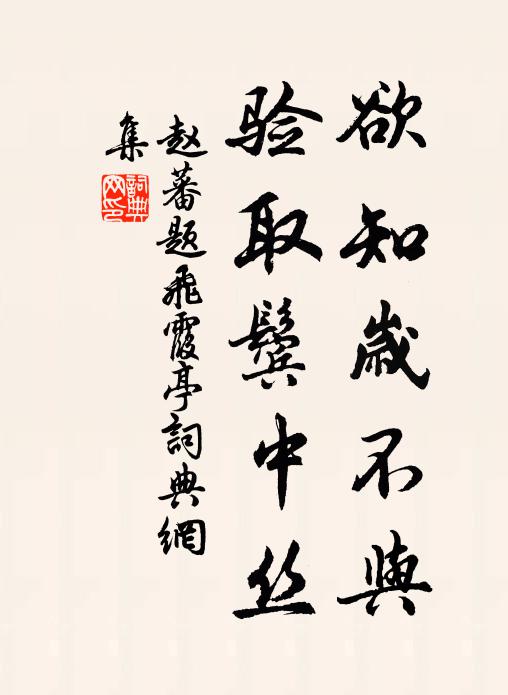 欲知歲不與
验取鬓中丝
赵蕃题飛霞亭詞典網
集
詞典
网印